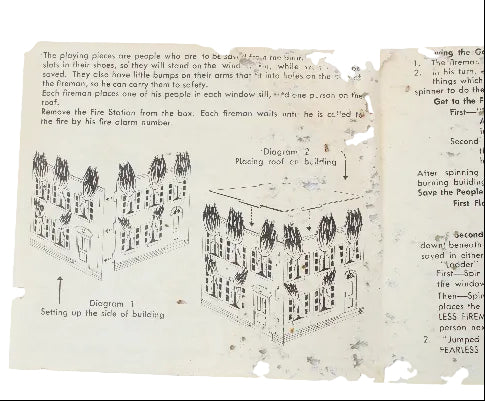 The playing pieces are people who are to be saved from the
slots in their shoes, so they will stand on the window while
saved. They also have little bumps on their arms that fit into holes on the
the fireman, so he can carry them to safety.
Each fireman places one of his people in each window sill, and one person on the
roof.
Remove the Fire Station from the box. Each fireman waits until he is called to
the fire by his fire alarm number.
Diagram 2
Placing roof on building
Diagram 1
Setting up the side of building
1. The fireman
2. In his turn,
things which
spinner to do the
Get to the F
First—
Second
After spinning
burning building
Save the People
First Fl
Second
down beneath
saved in either
"Ladder"
First—Spin
the window
Then—Spin
places the
LESS FIREM
person nex
2. "Jumped
FEARLESS